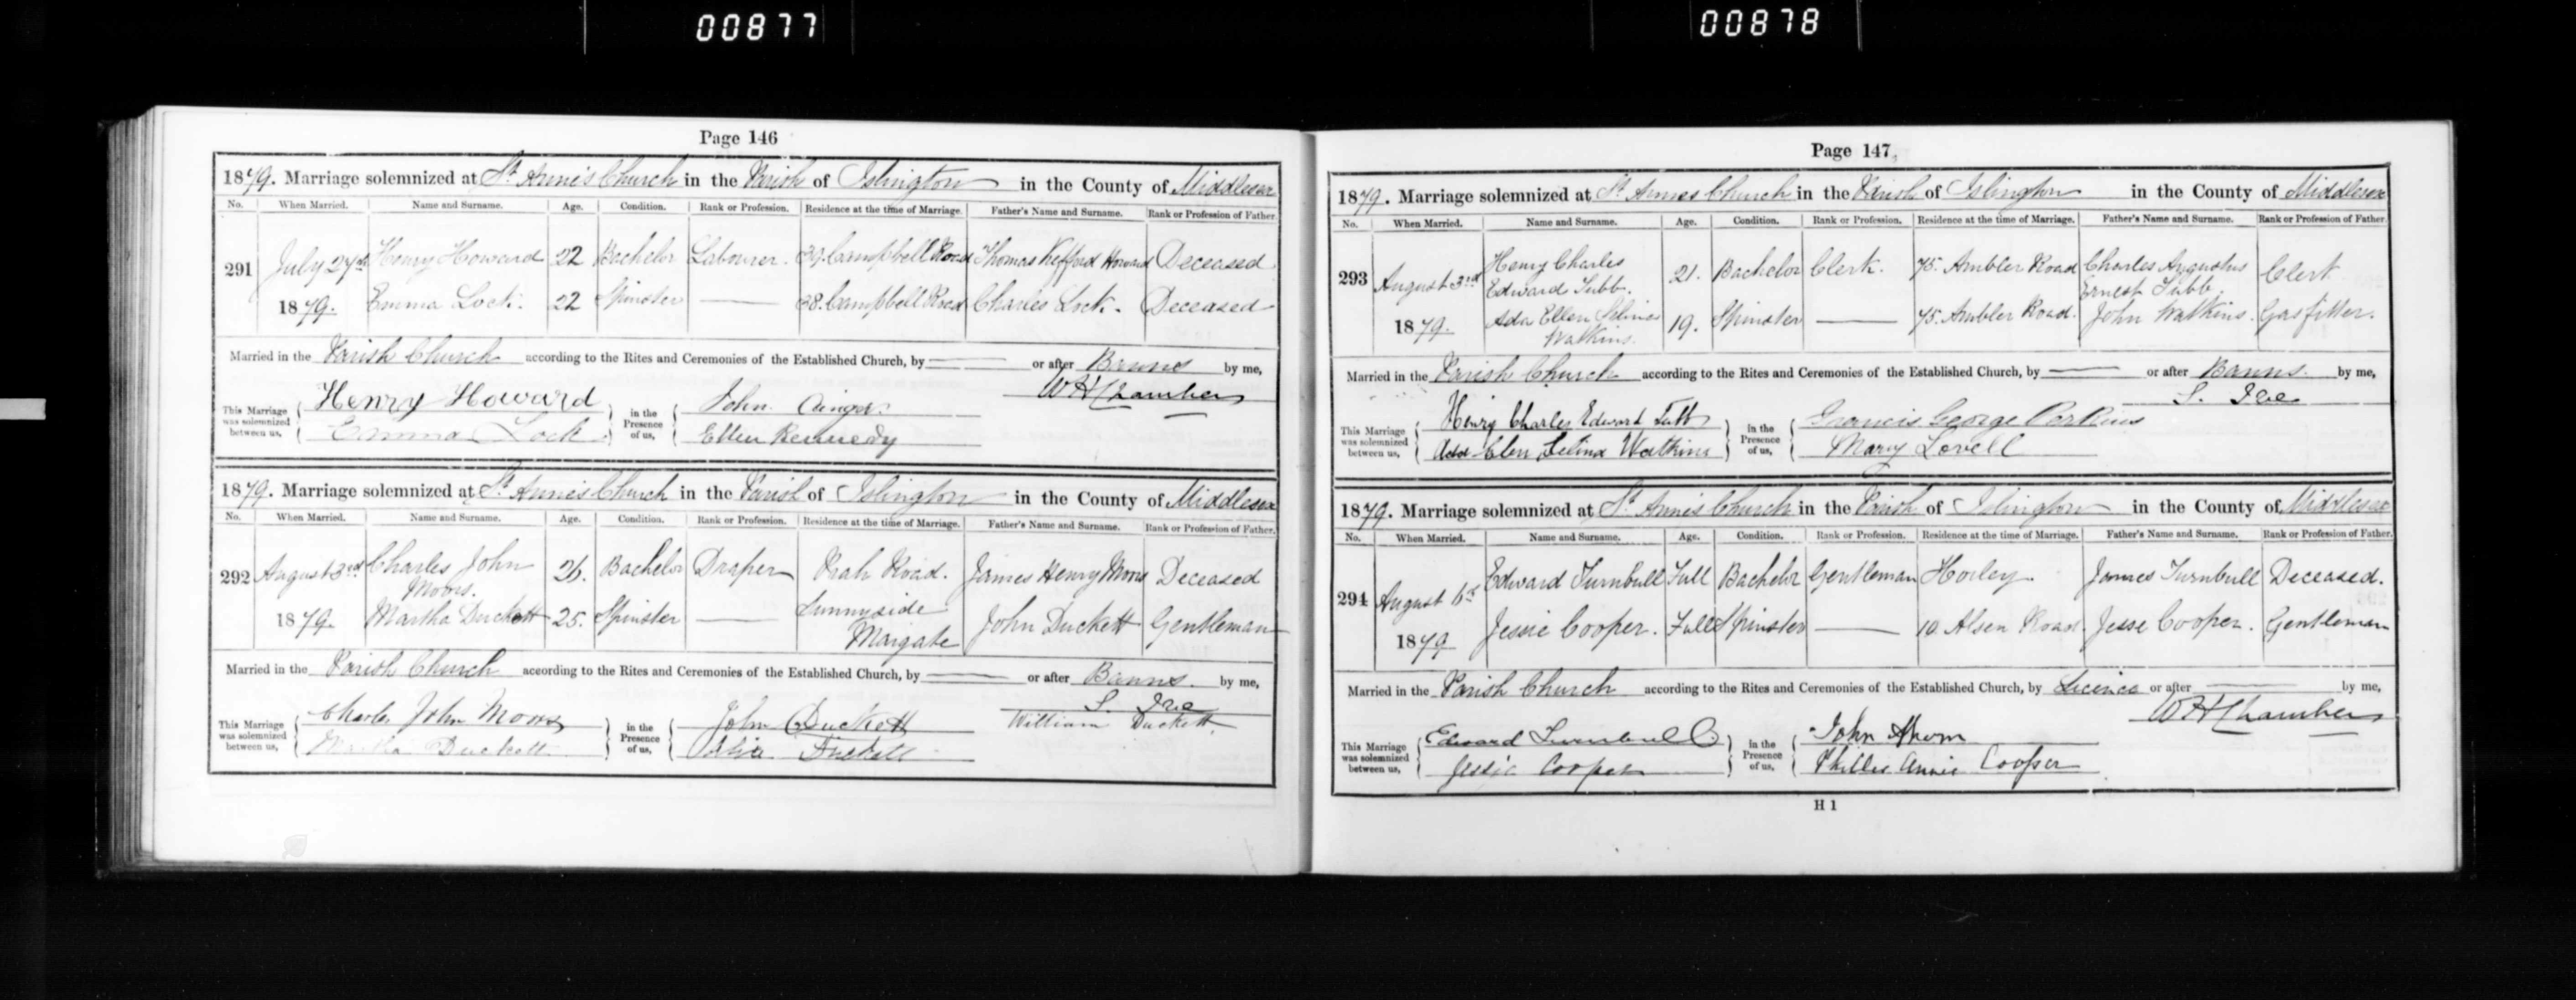 00877
00878
Page 146
1879. Marriage solemnized at St. Anne's Church in the Parish of Islington in the County of Middlesex
No. When Married. Name and Surname. Age. Condition. Rank or Profession. Residence at the time of Marriage. Father's Name and Surname. Rank or Profession of Father.
291 July 27th Henry Howard 22 Bachelor Labourer. 39. Campbell Road Thomas Kefford Howard Deceased
1879. Emma Lock. 22 Spinster 38. Campbell Road Charles Lock. Deceased
Married in the Parish Church according to the Rites and Ceremonies of the Established Church, by or after Banns by me,
W H Chambers
This Marriage was solemnized between us, Henry Howard in the Presence of us, John
Emma Lock Ellen Kennedy
1879. Marriage solemnized at St. Anne's Church in the Parish of Islington in the County of Middlesex
No. When Married. Name and Surname. Age. Condition. Rank or Profession. Residence at the time of Marriage. Father's Name and Surname. Rank or Profession of Father.
292 August 3rd Charles John Moors. 26. Bachelor Draper Prah Road. James Henry Moors Deceased
1879. Martha Duckett 25. Spinster Sunnyside Margate John Duckett Gentleman
Married in the Parish Church according to the Rites and Ceremonies of the Established Church, by or after Banns. by me,
This Marriage was solemnized between us, Charles John Moors in the Presence of us, John Duckett William Duckett.
Martha Duckett Duckett
Page 147.
1879. Marriage solemnized at St. Anne's Church in the Parish of Islington in the County of Middlesex
No. When Married. Name and Surname. Age. Condition. Rank or Profession. Residence at the time of Marriage. Father's Name and Surname. Rank or Profession of Father.
293 August 3rd Henry Charles Edward Tubb. 21. Bachelor Clerk. 75. Ambler Road Charles Augustus Ernest Tubb. Clerk
1879. Ada Ellen Selina Watkins. 19. Spinster 75. Ambler Road. John Watkins. Gasfitter.
Married in the Parish Church according to the Rites and Ceremonies of the Established Church, by or after Banns. by me,
This Marriage was solemnized between us, Henry Charles Edward Tubb in the Presence of us, Francis George Perkins
Ada Ellen Selina Watkins Mary Lovell
1879. Marriage solemnized at St. Anne's Church in the Parish of Islington in the County of Middlesex
No. When Married. Name and Surname. Age. Condition. Rank or Profession. Residence at the time of Marriage. Father's Name and Surname. Rank or Profession of Father.
294 August 6th Edward Turnbull Full Bachelor Gentleman Horley. James Turnbull Deceased.
1879 Jessie Cooper. Full Spinster 10 Alsen Road. Jesse Cooper. Gentleman
Married in the Parish Church according to the Rites and Ceremonies of the Established Church, by Licence or after by me,
W H Chambers
This Marriage was solemnized between us, Edward Turnbull in the Presence of us, John
Jessie Cooper Annie Cooper
H 1